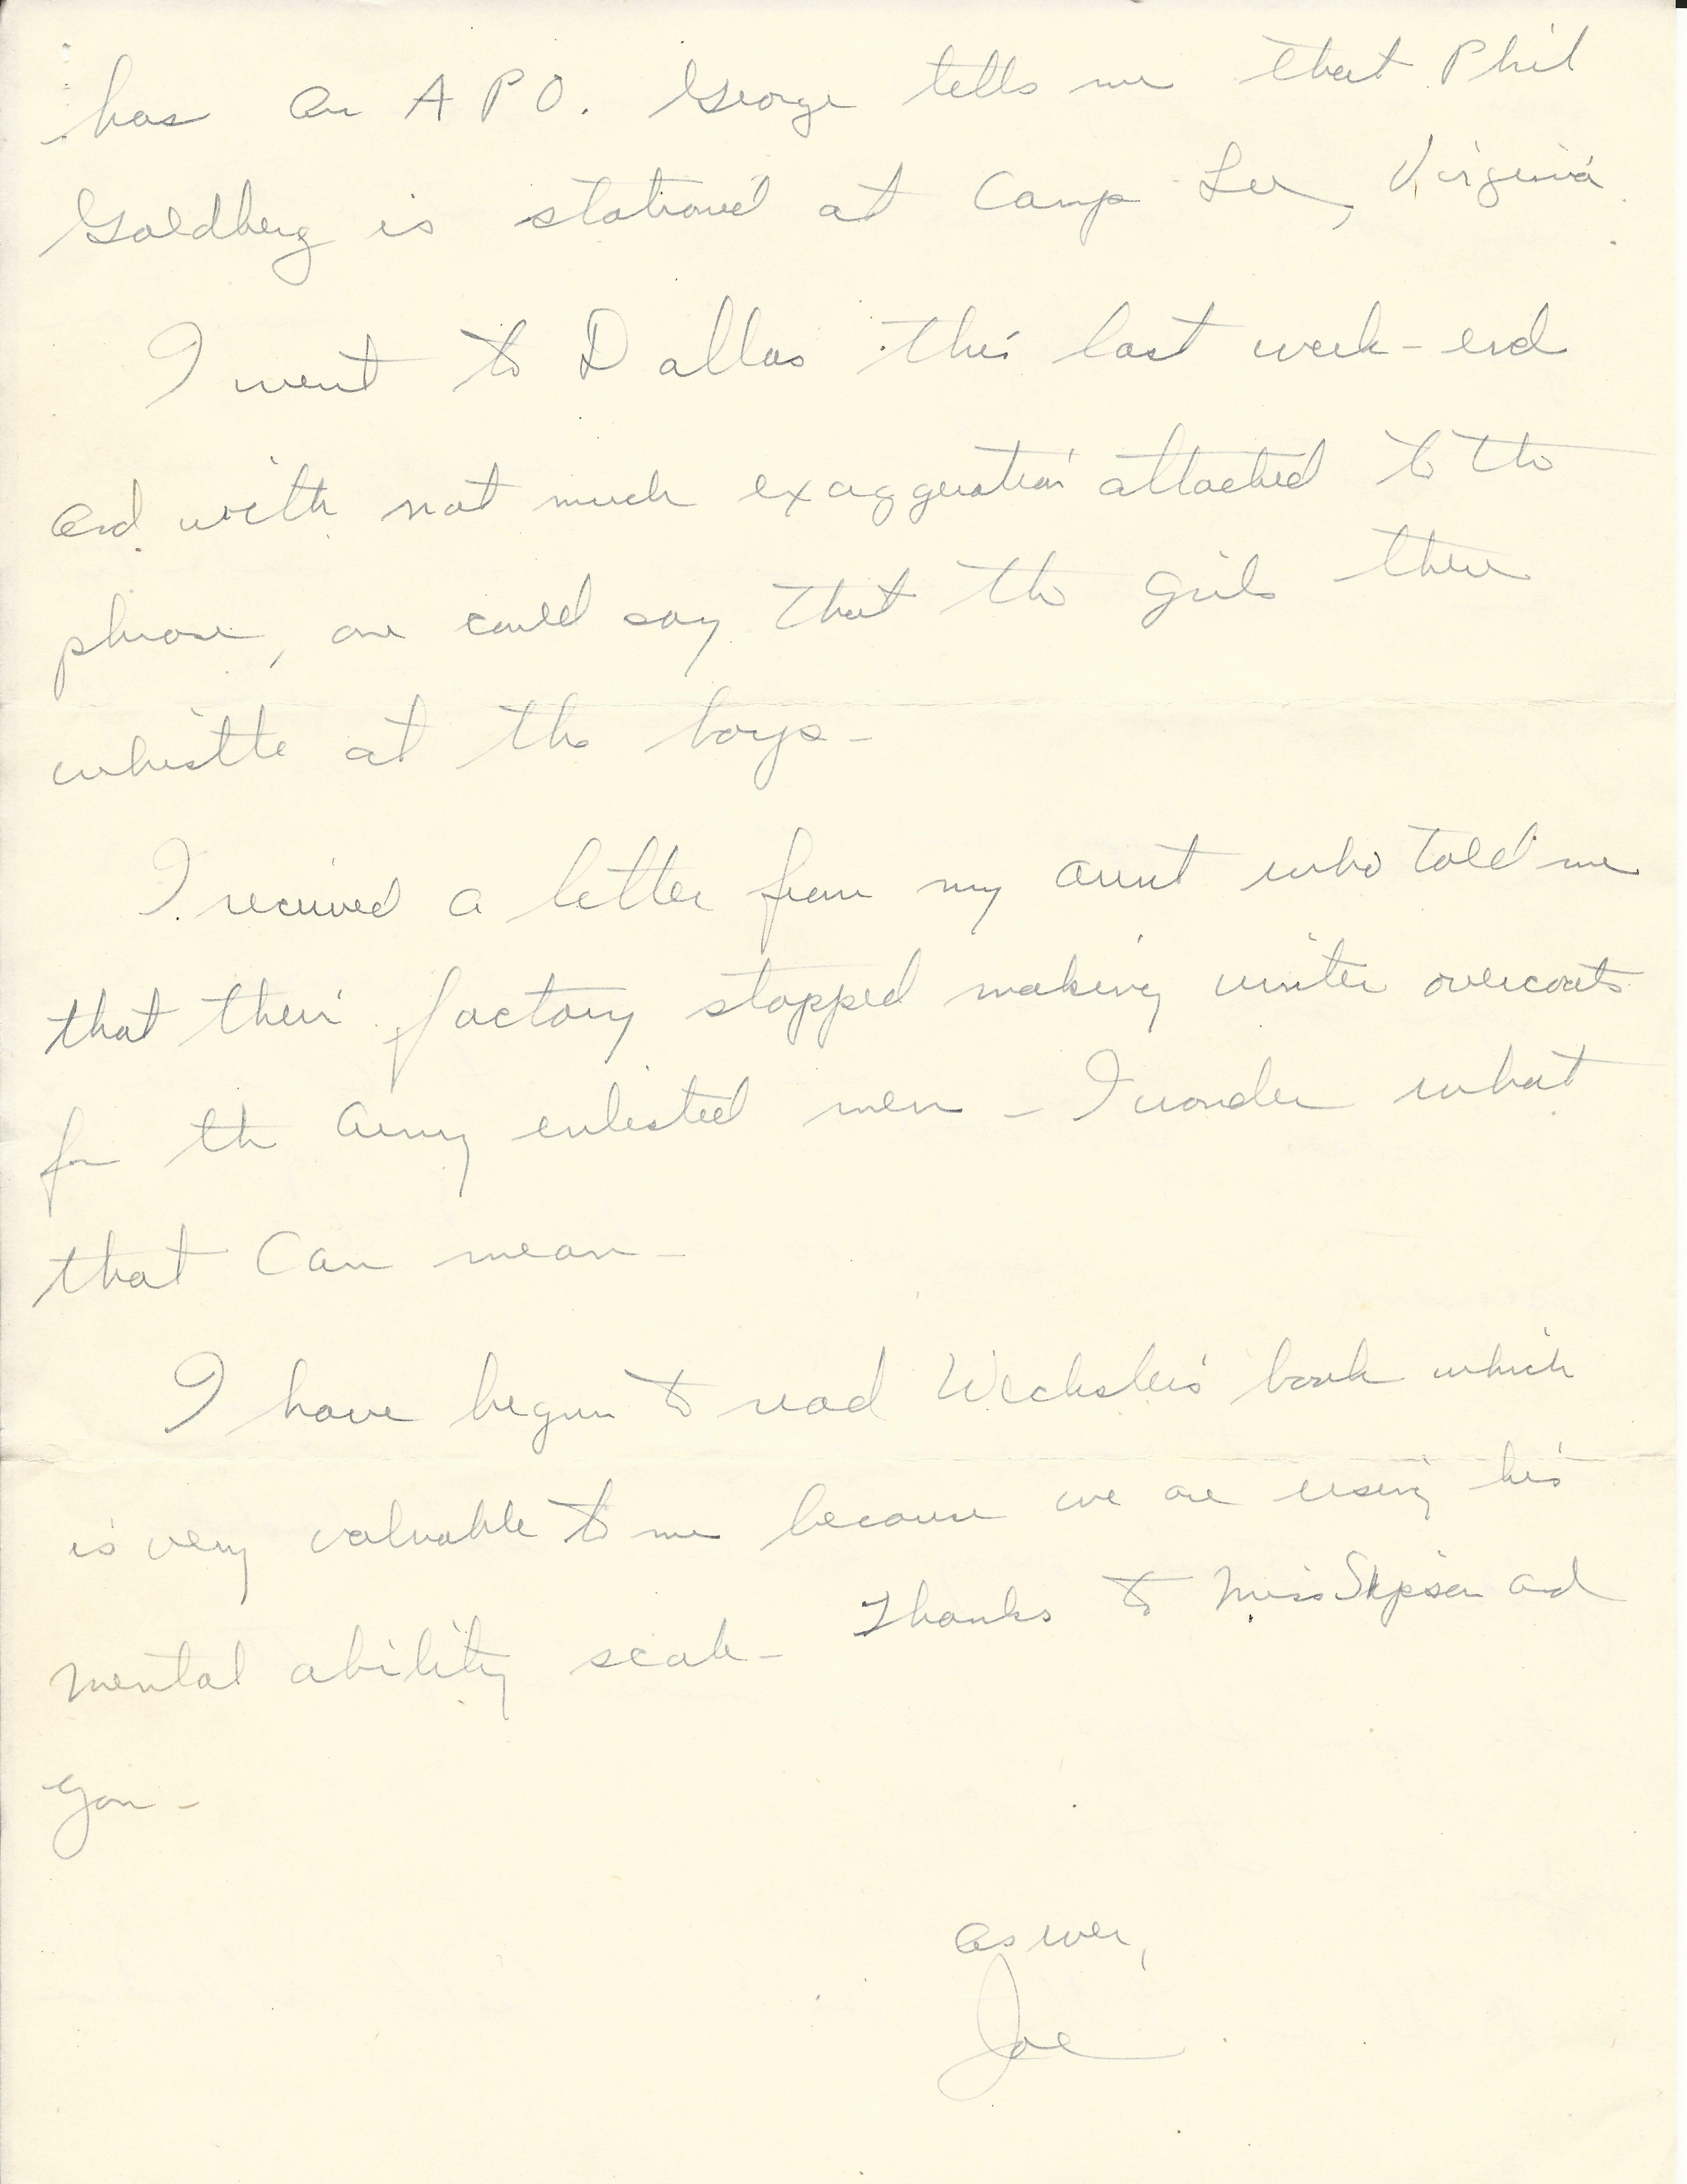 has an A P O. George tells me that Phil
Goldberg is stationed at Camp Lee, Virginia.
I went to Dallas this last week-end
and with not much exaggeration attached to the
phrase, one could say that the girls there
whistle at the boys -
I received a letter from my aunt who told me
that their factory stopped making winter overcoats
for the Army enlisted men - I wonder what
that can mean -
I have begun to read Wechsler's book which
is very valuable to me because we are using his
mental ability scale - Thanks to Miss and
you -
As ever,
Joe